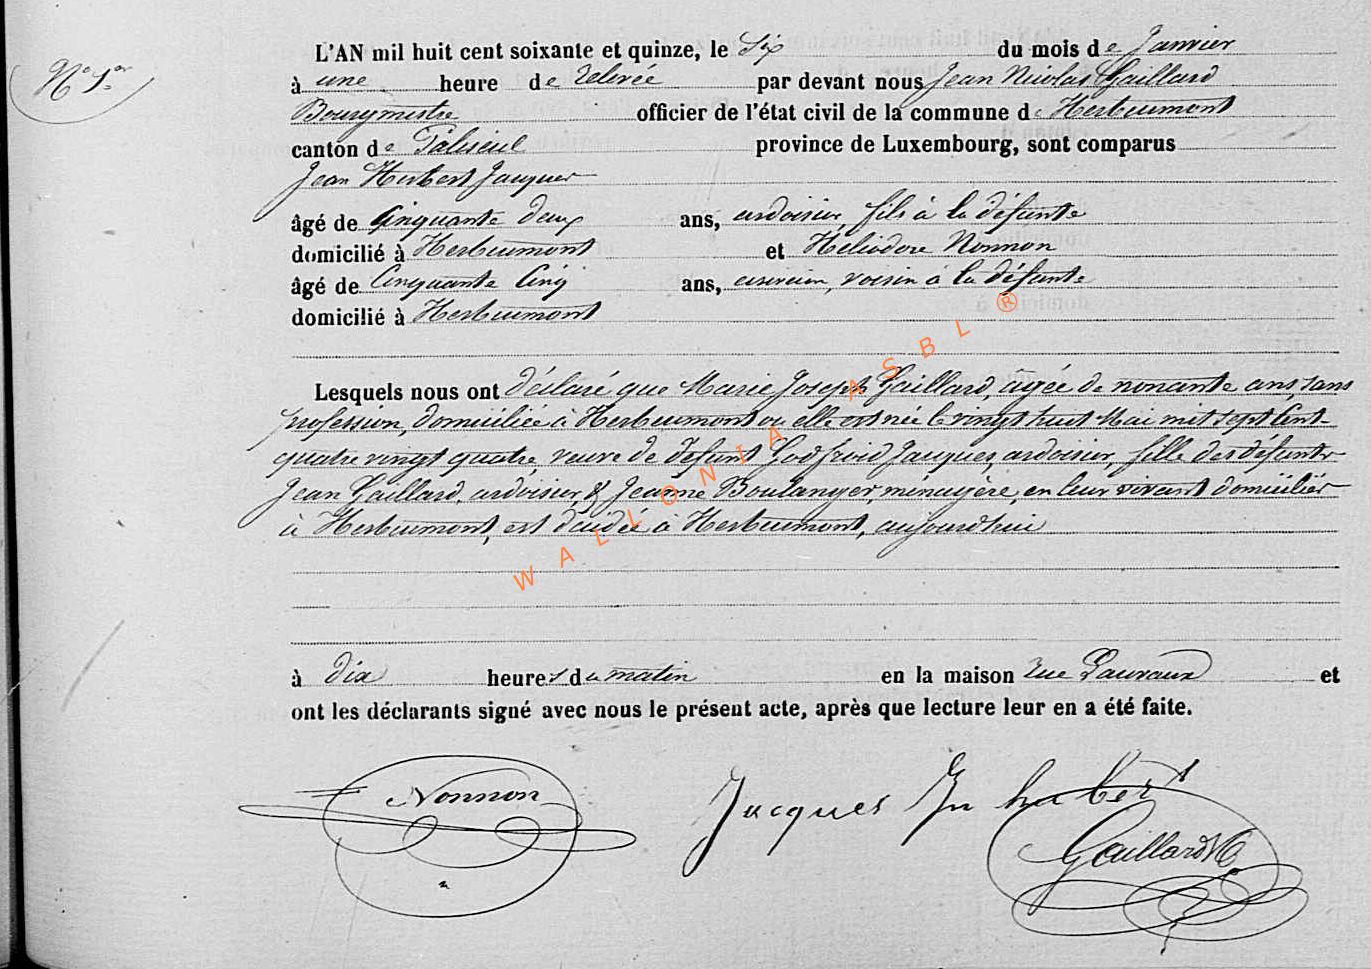 N° 1er
L'AN mil huit cent soixante et quinze, le Six du mois de Janvier
à une heure de relevée par devant nous Jean Nicolas Gaillard
Bourgmestre officier de l'état civil de la commune de Herbeumont
canton de Paliseul province de Luxembourg, sont comparus
Jean Herbert Jacques
âgé de Cinquante deux ans, ardoisier, fils à la défunte
domicilié à Herbeumont et Héliodore Nonnon
âgé de Cinquante Cinq ans, voisin à la défunte
domicilié à Herbeumont
Lesquels nous ont déclaré que Marie Joseph Gaillard, âgée de nonante ans, sans
profession, domiciliée à Herbeumont où elle est née le vingt huit Mai mil sept Cent
quatre vingt quatre, veuve de défunt Godfroid Jacques, ardoisier, fille des défunts
Jean Gaillard, ardoisier & Jeanne Boulanger, ménagère, en leur vivant domiciliés
à Herbeumont, est décédée à Herbeumont, aujourd'hui
à dix heures du matin en la maison rue et
ont les déclarants signé avec nous le présent acte, après que lecture leur en a été faite.
Nonnon
Jacques Jn hubert
Gaillard
WALLONIA ASBL ®